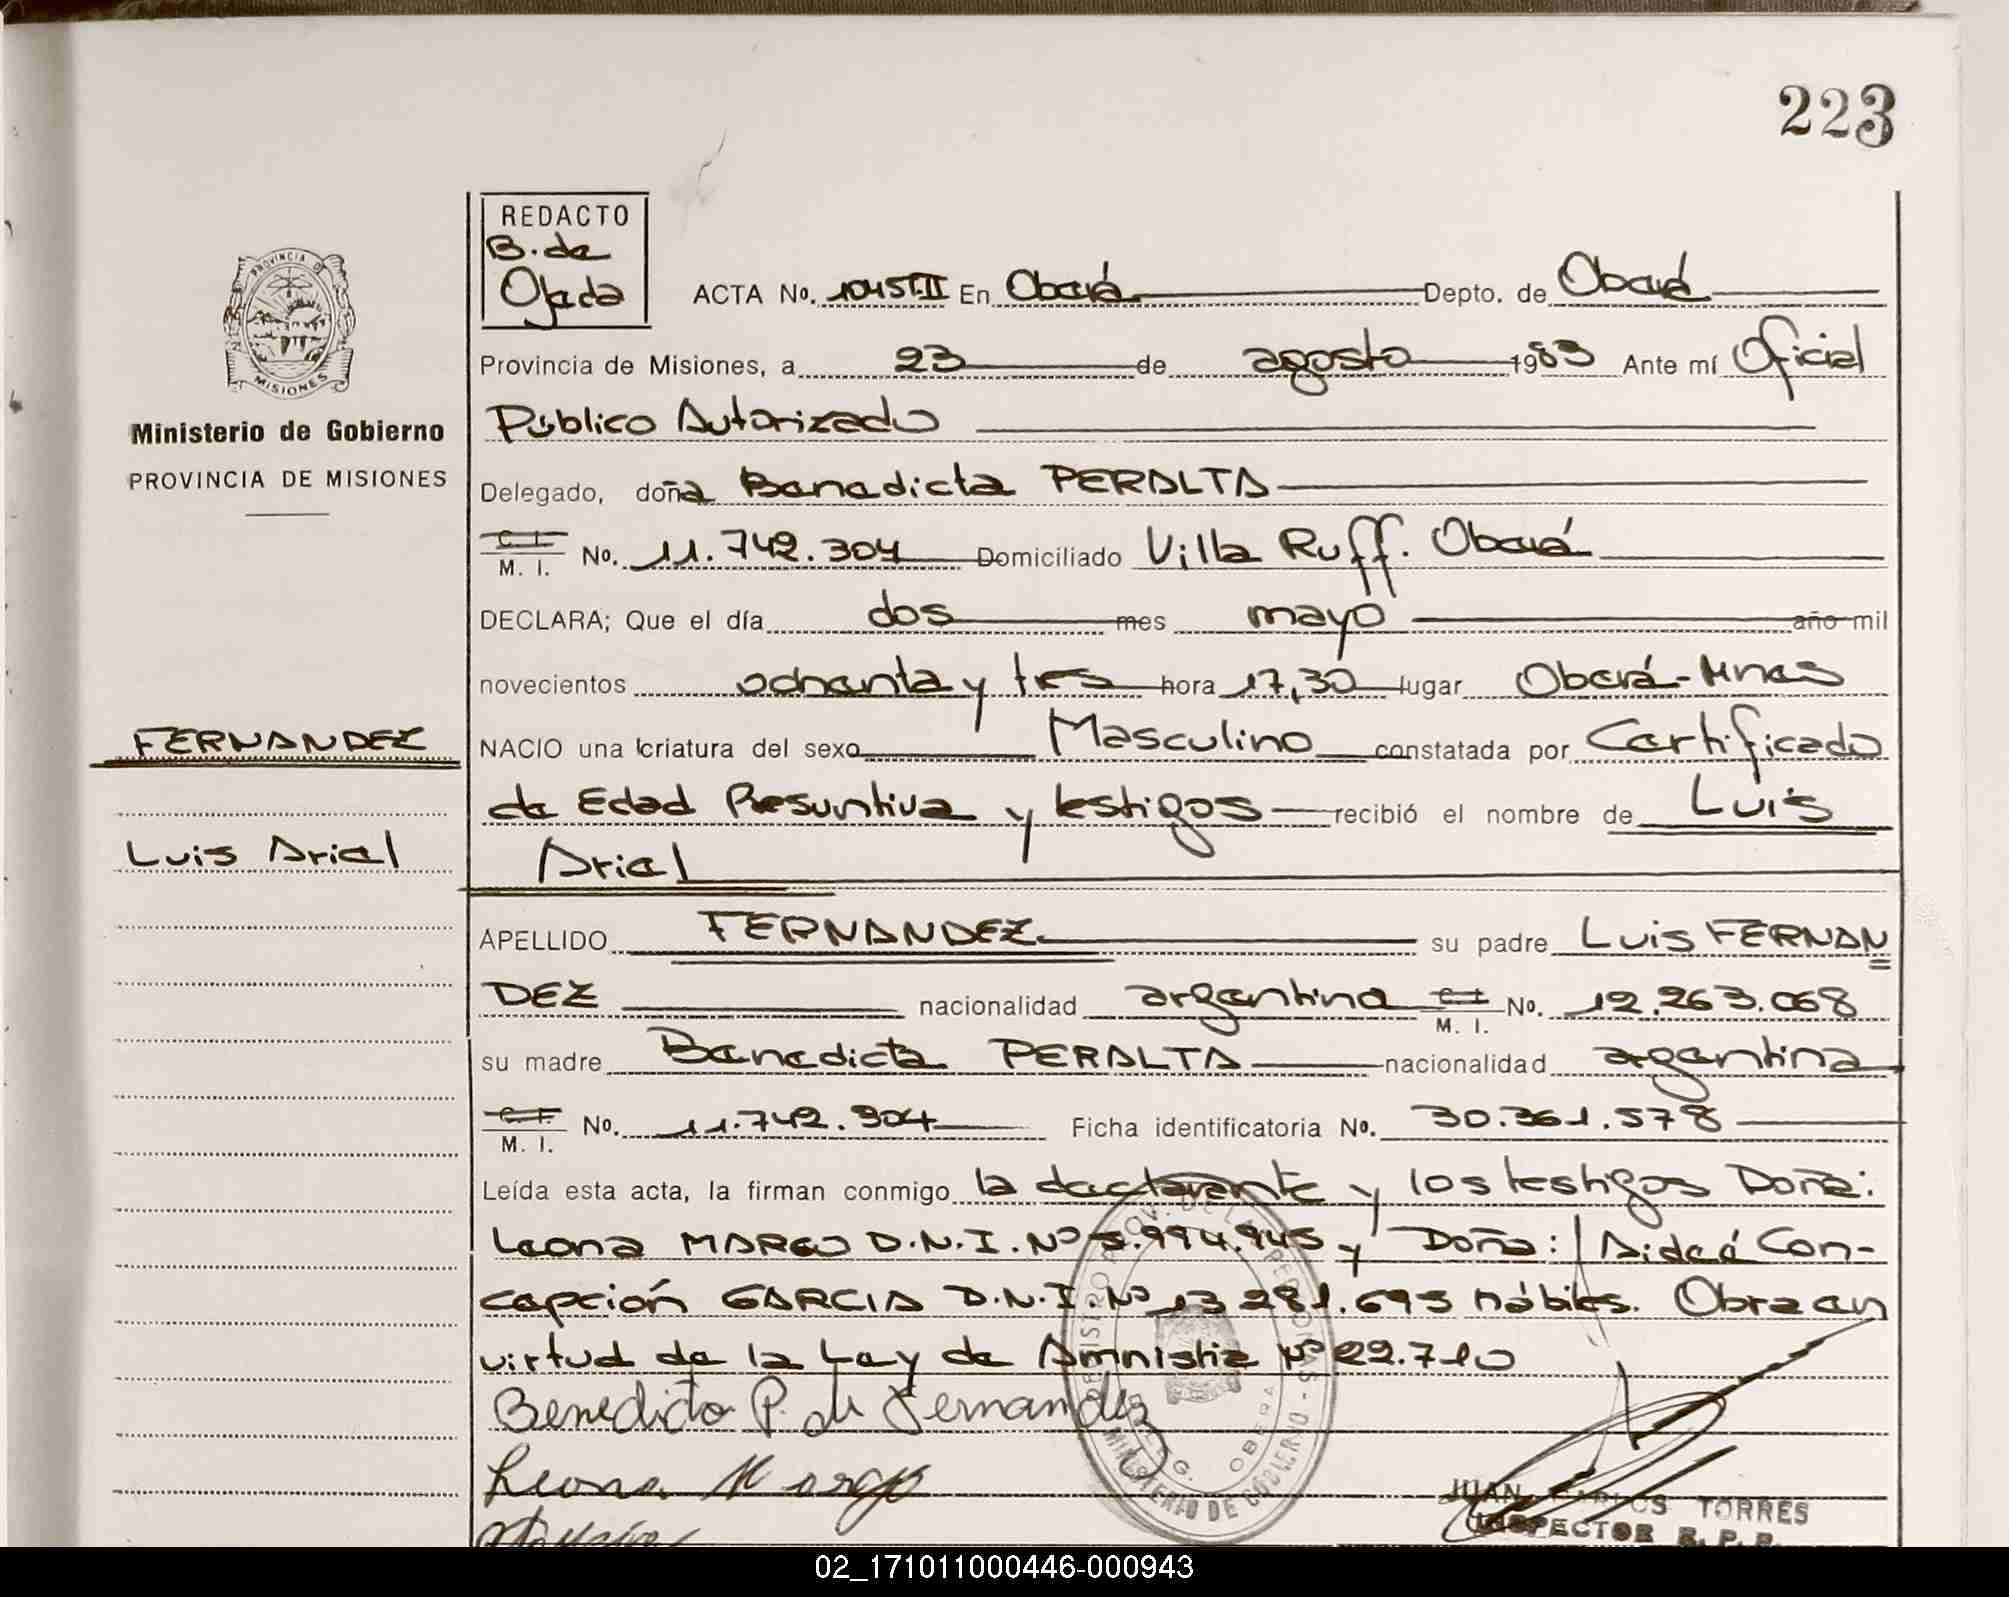 223
REDACTO
B. de
Ojeda
ACTA No. 1045TII En Oberá Depto. de Oberá
PROVINCIA DE
MISIONES
Provincia de Misiones, a 23 de agosto 1983 Ante mí Oficial
Público Autorizado
Ministerio de Gobierno
PROVINCIA DE MISIONES
Delegado, doña Benedicta PERALTA
C. I.
M. I. No. 11.742.304 Domiciliado Villa Ruff. Oberá
DECLARA; Que el día dos mes mayo año mil
novecientos ochenta y tres hora 17,30 lugar Oberá-Mnes
FERNANDEZ
NACIO una criatura del sexo Masculino constatada por Certificado
de Edad Presuntiva y testigos recibió el nombre de Luis
Luis Ariel
Ariel
APELLIDO FERNANDEZ su padre Luis FERNAN
DEZ nacionalidad argentina C. I. M. I. No. 12.263.068
su madre Benedicta PERALTA nacionalidad argentina
C. I.
M. I. No. 11.742.304 Ficha identificatoria No. 30.361.578
Leída esta acta, la firman conmigo la declarante y los testigos Doña:
Leona MARGO D.N.I. Nº .994.945 y Doña: Aideé Con-
cepción GARCIA D.N.I. Nº 13 281.695 hábiles. Obra en
virtud de la Ley de Amnistia Nº 22.710
Benedicta P. de Fernandez
Leona Margo
REGISTRO PROV. DE LAS PERSONAS - MINISTERIO DE GOBIERNO
DELEG. OBERA
JUAN CARLOS TORRES
INSPECTOR R. P. P.
02_171011000446-000943